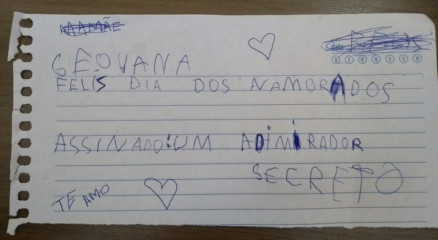 GEOVANA
FELIS DIA DOS NAMORADOS
ASSINADO:UM ADIMIRADOR
SECRETO
TE AMO